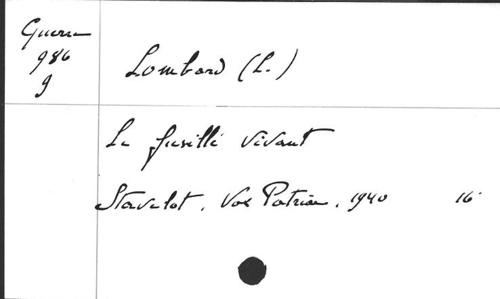 Guerre
986
9
Lombard (L.)
Le fusillé vivant
Stavelot, Vox Patriae, 1940 16°